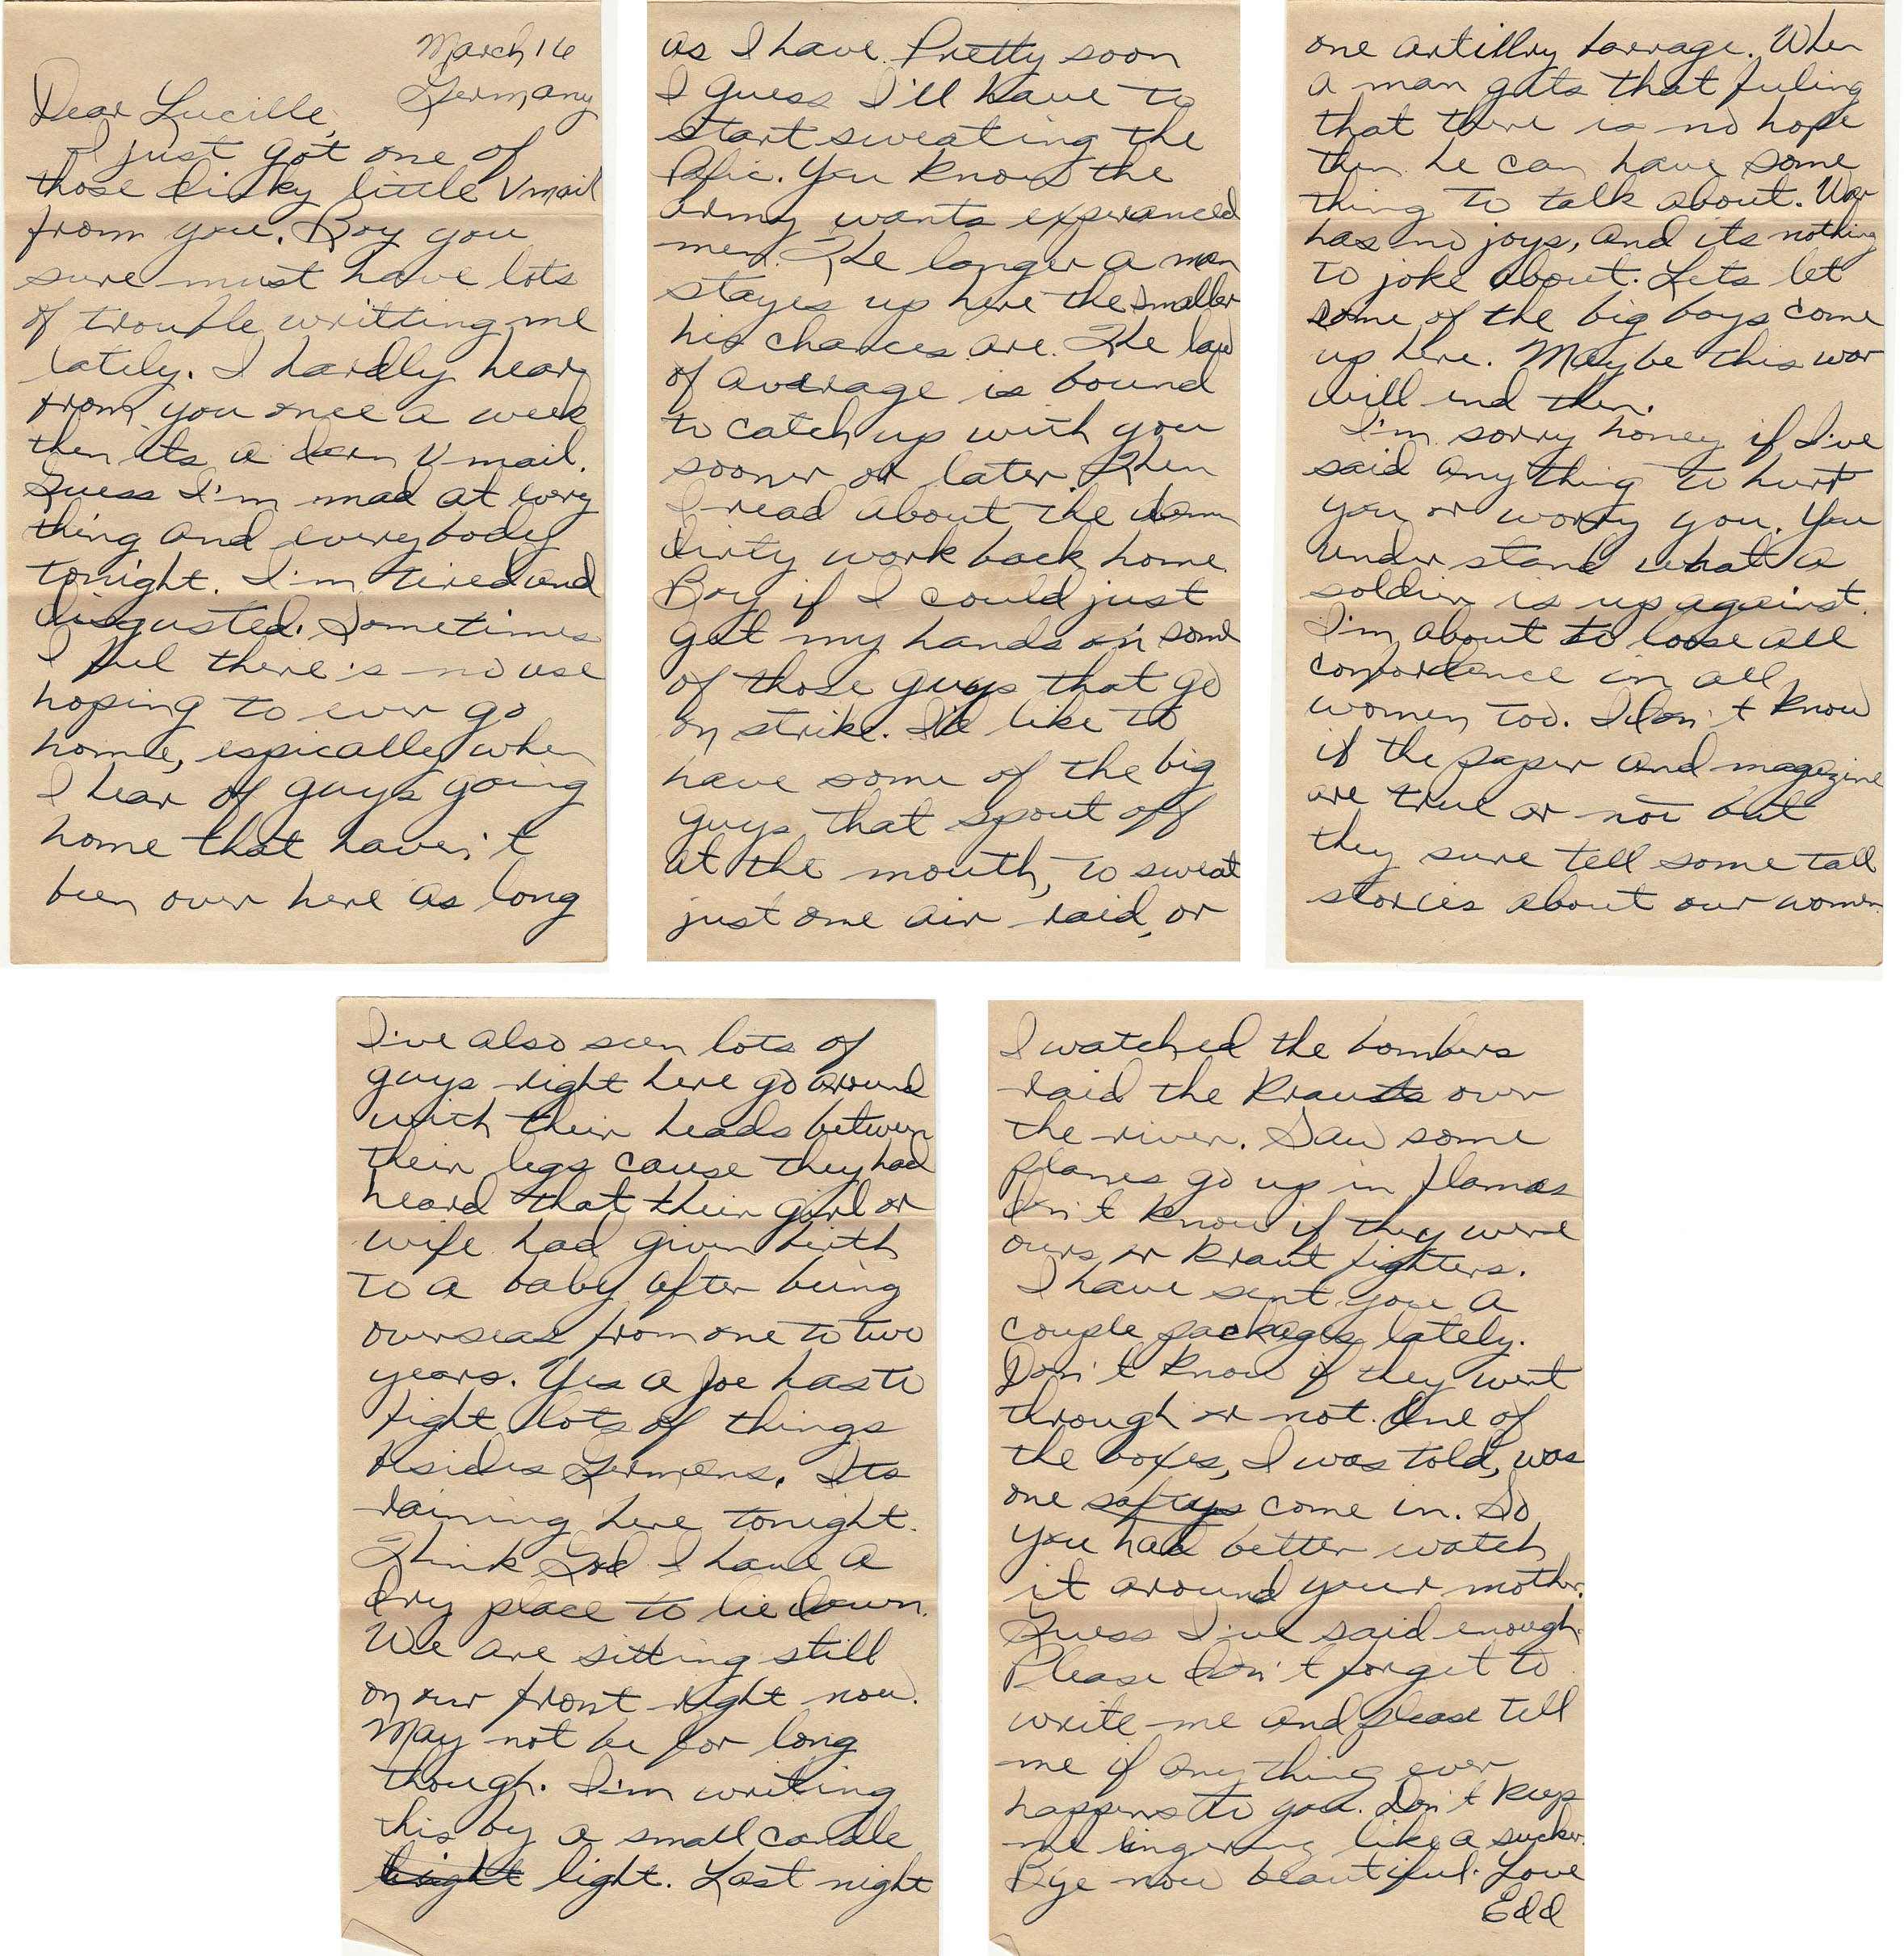 March 16
Germany
Dear Lucille,
I just got one of
those dinky little Vmail
from you. Boy you
sure must have lots
of trouble writting me
lately. I hardly hear
from you once a week
then its a darn Vmail.
Guess I'm mad at every
thing and everybody
tonight. I'm tired and
disgusted. Sometimes
I feel there's no use
hoping to ever go
home, espically when
I hear of guys going
home that haven't
been over here as long
as I have. Pretty soon
I guess I'll have to
start sweating the
Pafic. You know the
army wants experianced
men. The longer a man
stayes up here the smaller
his chances are. The law
of average is bound
to catch up with you
sooner or later. Then
I read about the damn
dirty work back home.
Boy if I could just
get my hands on some
of those guys that go
on strike. I'd like to
have some of the big
guys that spout off
at the mouth, to sweat
just one air raid, or
one artillry barrage. When
a man gets that feeling
that there is no hope
then he can have some
thing to talk about. War
has no joys, and its nothing
to joke about. Lets let
some of the big boys come
up here. Maybe this war
will end then.
I'm sorry honey if I've
said anything to hurt
you or worry you. You
under stand what a
soldier is up against.
I'm about to loose all
in all
women too. I don't know
if the paper and magazine
are true or not but
they sure tell some tall
stories about our women.
I've also seen lots of
guys right here go around
with their heads between
their legs cause they had
heard that their girl or
wife had given birth
to a baby after being
overseas from one to two
years. Yes a Joe has to
fight lots of things
besides Germans. Its
raining here tonight.
Think God I have a
dry place to lie down.
We are sitting still
on our front right now.
May not be for long
though. I'm writing
this by a small candle
light. Last night
I watched the bombers
raid the Krauts over
the river. Saw some
planes go up in flames
don't know if they were
ours or Kraut fighters.
I have sent you a
couple packages lately.
Don't know if they went
through or not. One of
the boxes, I was told, was
one come in. So
you had better watch
it around your mother.
Guess I've said enough.
Please don't forget to
write me and please tell
me if anything ever
happens to you. Don't keep
me lingering like a sucker.
Bye now beautiful. Love
Edd